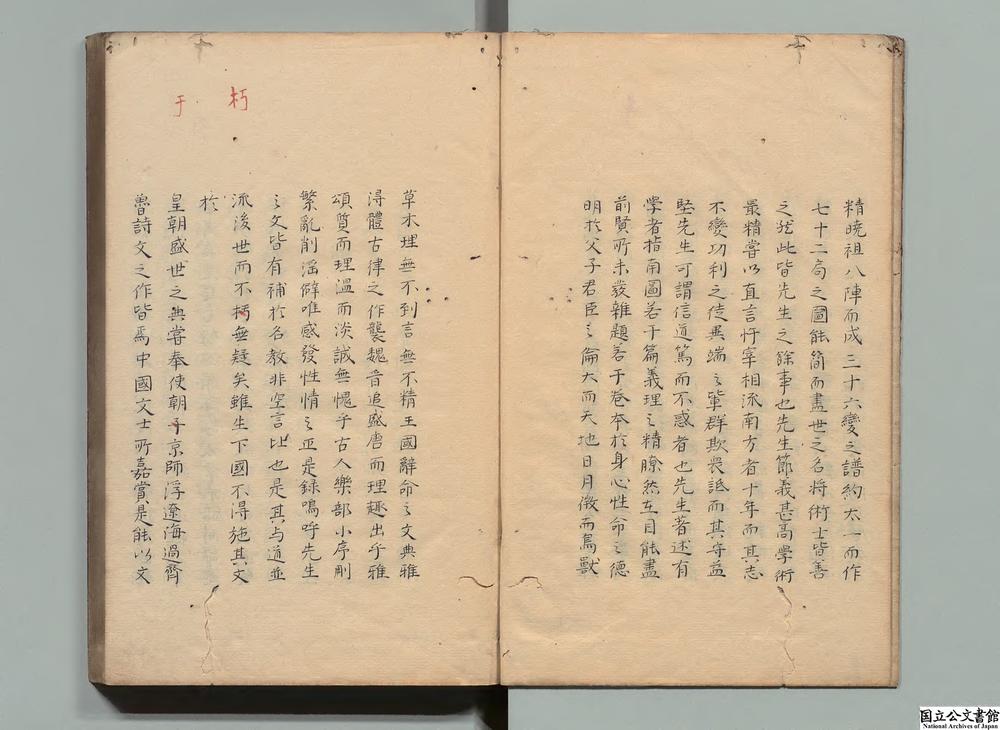 精曉祖八陣而成三十六變之譜約太一而作
七十二局之圖能簡而盡世之名將術士皆善
之然此皆先生之餘事也先生節義甚高學術
最精嘗以直言忤宰相流南方者十年而其志
不變功利之徒異端之輩群欺衆詆而其守益
堅先生可謂信道篤而不惑者也先生著述有
學者指南圖若干篇義理之精瞭然在目能盡
前賢所未發雜題若于卷本於身心性命之德
明於父子君臣之倫大而天地日月微而鳥獸
草木理無不到言無不精王國辭命之文典雅
得體古律之作襲魏晋追盛唐而理趣出乎雅
頌質而理溫而淡誠無愧乎古人樂部小序刪
繁亂削滛僻唯感發性情之正是録嗚呼先生
之文皆有補於名教非空言比也是其与道並
流後世而不朽無疑矣雖生下國不得施其文
於
皇朝盛世之典嘗奉使朝子京師浮遼海過齊
魯詩文之作皆爲中國文士所嘉賞是能以文
朽
于
国立公文書館
National Archives of Japan